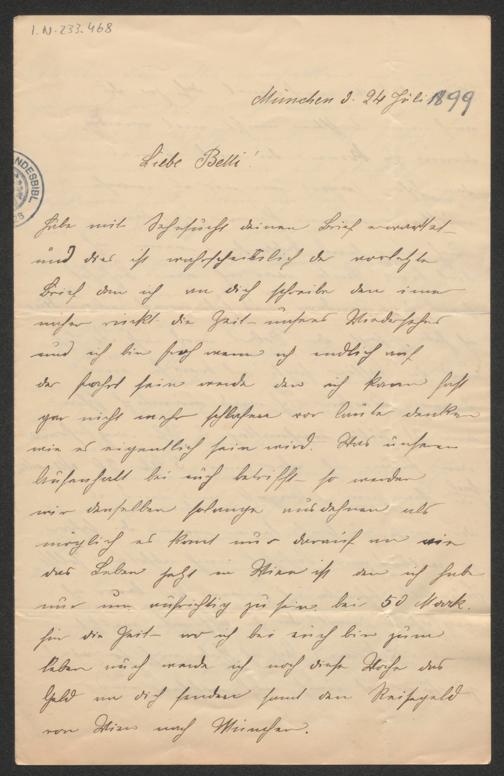 I.N-233.468
München d. 24 Juli 1899
Liebe Betti!
Habe mit Sehnsucht deinen Brief erwartet
und dies ist wahrscheinlich der vorletzte
Brief den ich an dich schreibe den imer
näher rückt die Zeit unseres Wiedersehns
und ich bin froh wenn ich endlich auf
der Fahrt sein werde den ich kann fast
gar nicht mehr schlafen vor lauter denken
wie es eigentlich sein wird. Was unseren
Aufenthalt bei euch betrifft so werden
wir denselben solange ausdehnen als
möglich es komt nur darauf an wie
das Leben jetzt in Wien ist den ich habe
nur um aufrichtig zu sein bei 50 Mark
für die Zeit wo ich bei euch bin zum
leben auch werde ich noch diese Woche das
Geld an dich senden samt den Reisegeld
von Wien nach München.